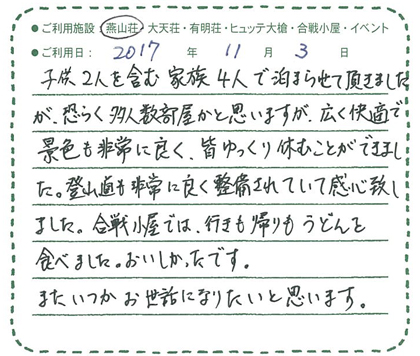 ●ご利用施設：燕山荘・大天荘・有明荘・ヒュッテ大槍・合戦小屋・イベント
●ご利用日：2017年11月3日
子供2人を含む家族4人で泊まらせて頂きました
が、恐らく多人数部屋かと思いますが、広く快適で
景色も非常に良く、皆ゆっくり休むことができまし
た。登山道も非常に良く整備されていて感心致し
ました。合戦小屋では、行きも帰りもうどんを
食べました。おいしかったです。
またいつかお世話になりたいと思います。